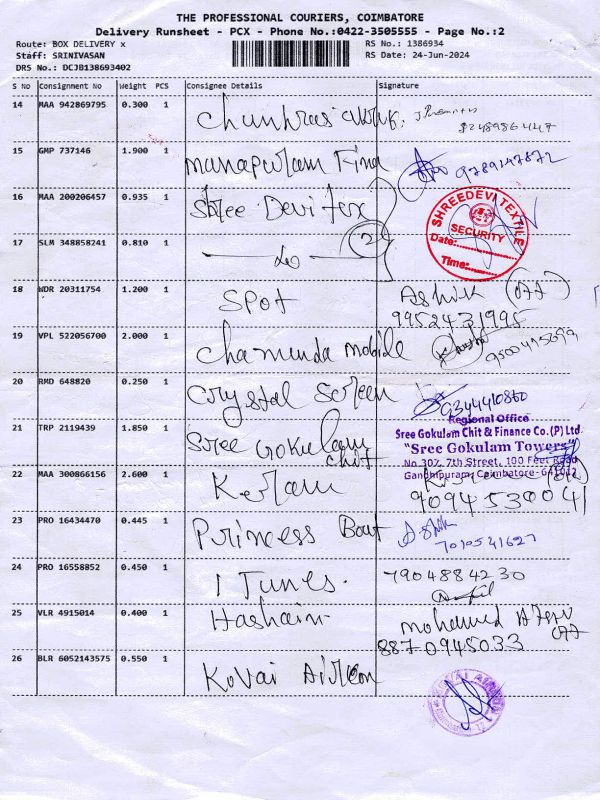 THE PROFESSIONAL COURIERS, COIMBATORE
Delivery Runsheet - PCX - Phone No.:0422-3505555 - Page No.:2
Route: BOX DELIVERY x RS No.: 1386934
Staff: SRINIVASAN RS Date: 24-Jun-2024
DRS No.: DCJB138693402
S No Consignment No Weight PCS Consignee Details Signature
14 MAA 942869795 0.300 1
15 GMP 737146 1.900 1 manapuram Fina 9789147872
16 MAA 200206457 0.935 1 Shree Devi tex
SHREEDEVI TEXTILE
SECURITY
Date:
Time:
17 SLM 348858241 0.810 1 do 2
18 WDR 20311754 1.200 1 SPOT Ashik
9952431995
19 VPL 522056700 2.000 1 chamunda mobile 9500415699
20 RMD 648820 0.250 1 crystal screen 9344410860
21 TRP 2119439 1.850 1 Sree Gokulam
chit
Regional Office
Sree Gokulam Chit & Finance Co.(P) Ltd.
"Sree Gokulam Towers"
No.307, 7th Street, 100 Feet Road
Gandhipuram, Coimbatore-641012
22 MAA 300866156 2.600 1 Kerlam
9094530041
23 PRO 16434470 0.445 1 Princess Bout
7010541627
24 PRO 16558852 0.450 1 I Tunes. 7904884230
25 VLR 4915014 0.400 1 Hashaim mohamed
8870945033
26 BLR 6052143575 0.550 1 Kovai Aircon